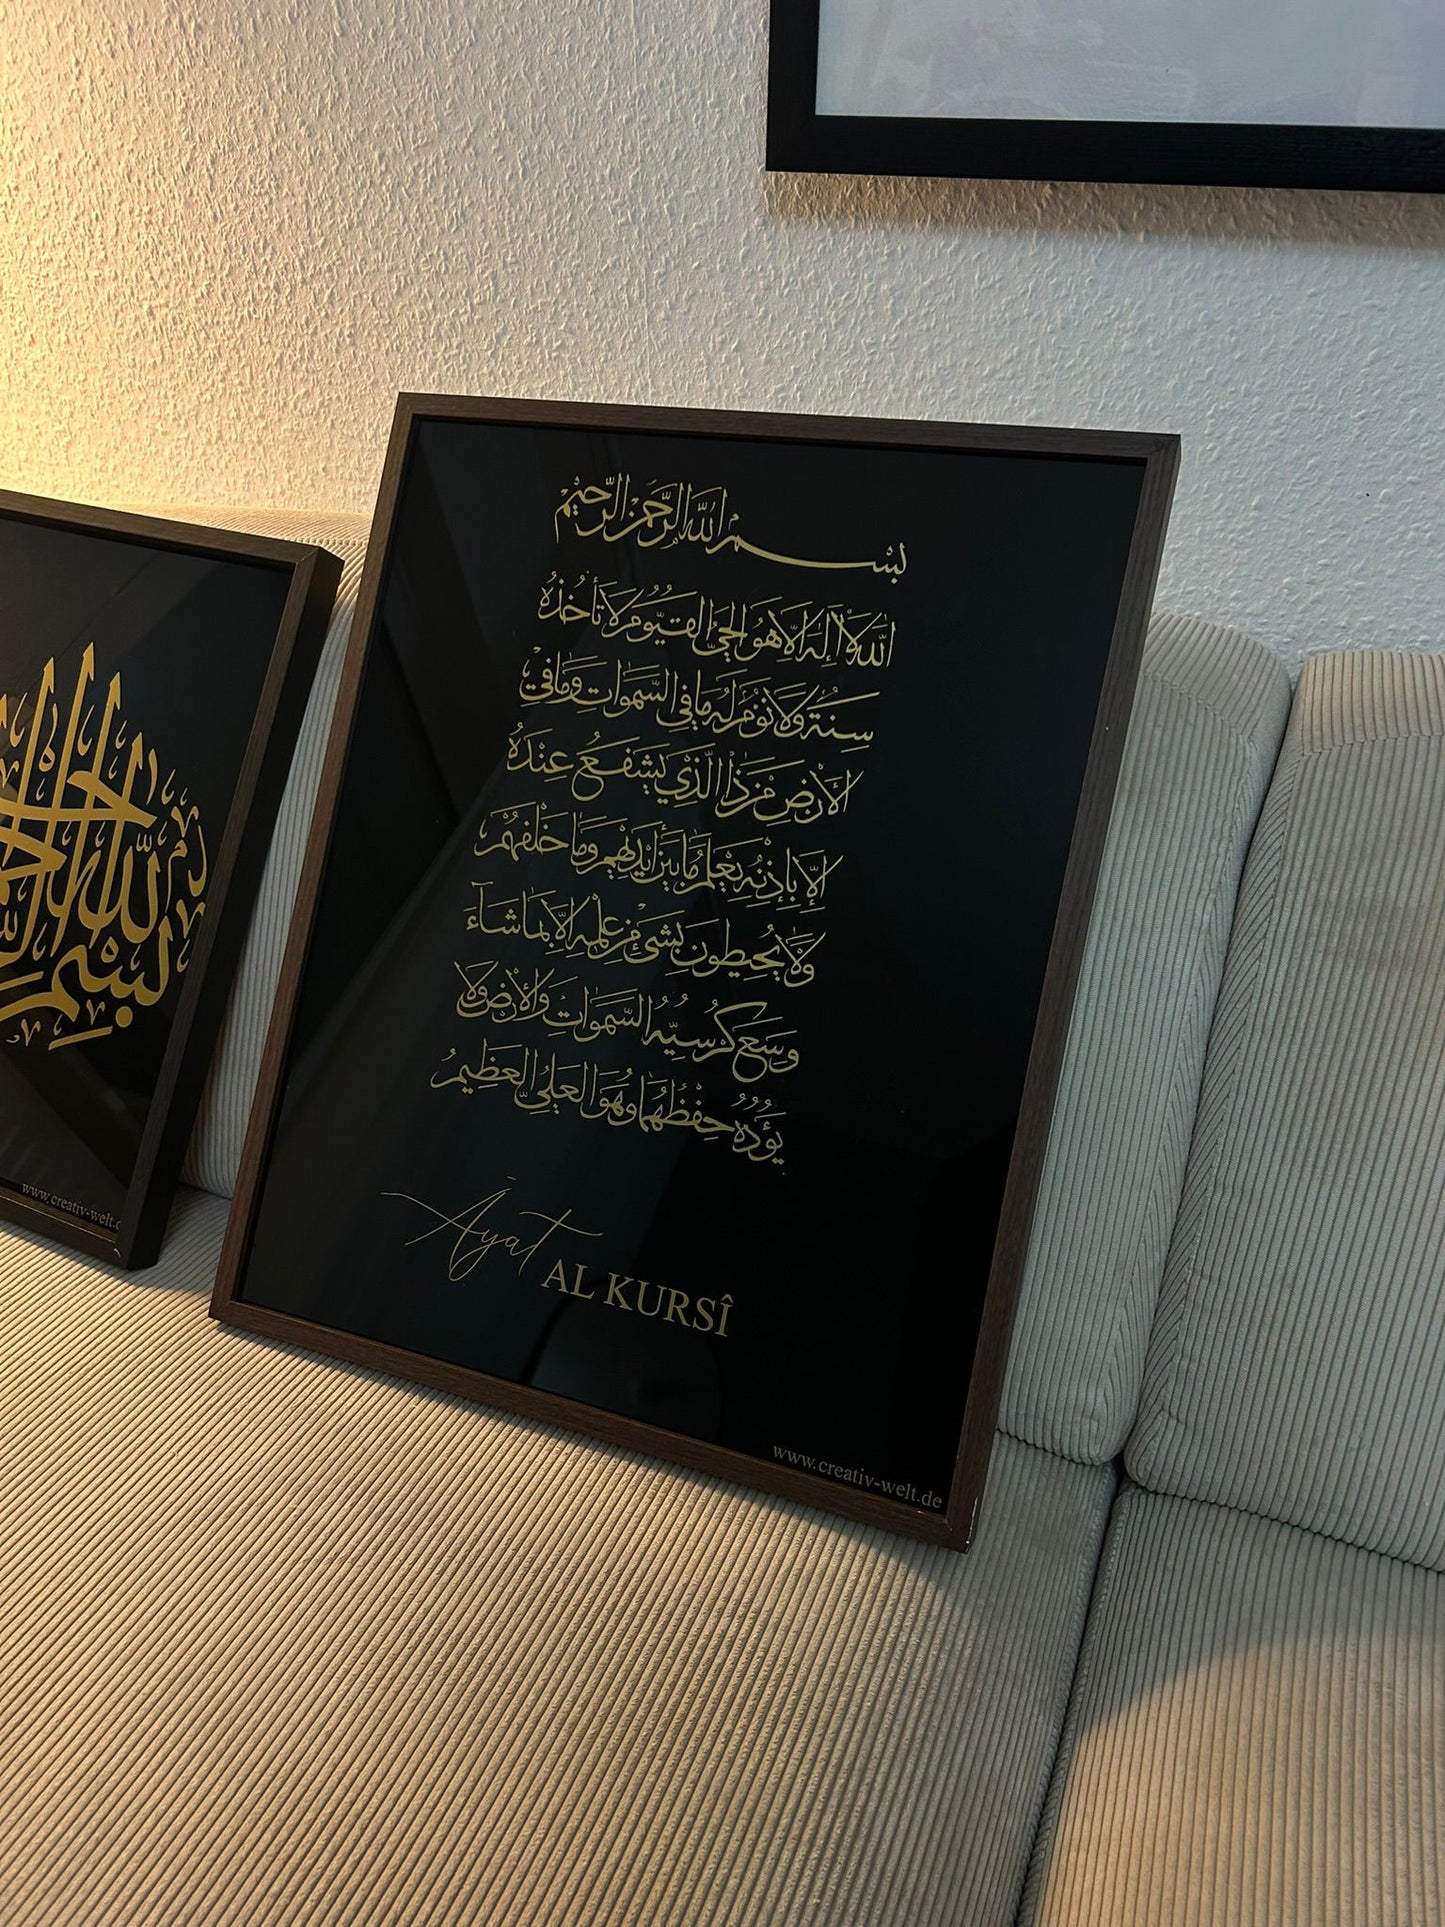 بسم الله الرحمن الرحيم
الله لا إله إلا هو الحي القيوم لا تأخذه
سنة ولا نوم له ما في السموات وما في
الأرض من ذا الذي يشفع عنده
إلا بإذنه يعلم ما بين أيديهم وما خلفهم
ولا يحيطون بشيء من علمه إلا بما شاء
وسع كرسيه السموات والأرض ولا
يؤده حفظهما وهو العلي العظيم
Ayat
AL KURSÎ
www.creativ-welt.de
www.creativ-welt.d